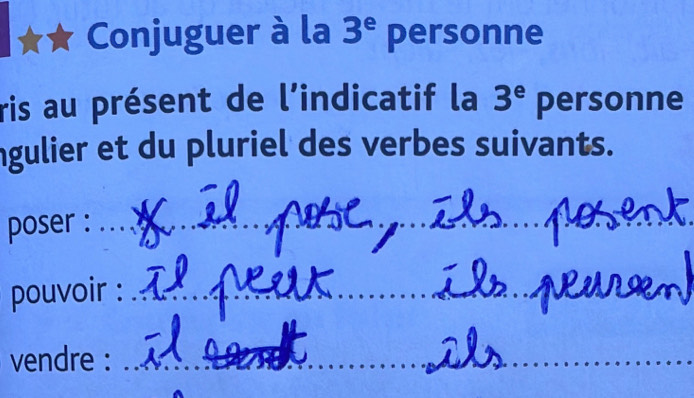 ★★ Conjuguer à la 3e personne
ris au présent de l'indicatif la 3e personne
ngulier et du pluriel des verbes suivants.
poser : il pose, ils posent
pouvoir : il peut ils peuvent
vendre : il ils